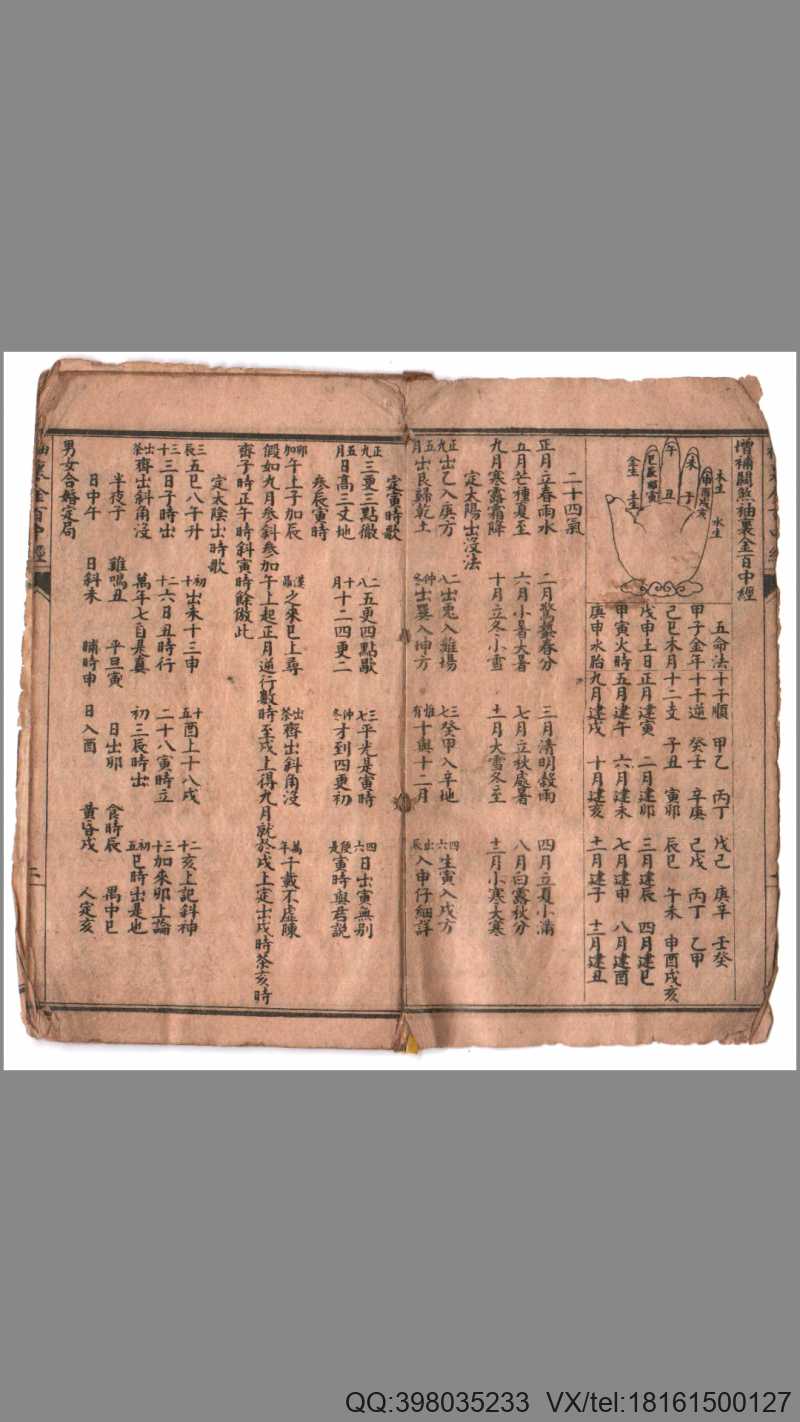 增補關煞袖裏金百中經
木生
水生
金生
土生
午
未
子
丑
申酉戌亥
五命法十干順 甲乙 丙丁 戊己 庚辛 壬癸
甲子金年十干逆 癸壬 辛庚 己戊 丙丁 乙甲
己巳木月十二支 子丑 寅卯 辰巳 午未 申酉戌亥
戊申土日正月建寅 二月建卯 三月建辰 四月建巳
甲寅火時五月建午 六月建未 七月建申 八月建酉
庚申水胎九月建戌 十月建亥 十一月建子 十二月建丑
二十四氣
正月立春雨水 二月驚蟄春分 三月清明穀雨 四月立夏小滿
五月芒種夏至 六月小暑大暑 七月立秋處暑 八月白露秋分
九月寒露霜降 十月立冬小雪 十一月大雪冬至 十二月小寒大寒
定太陽出沒法
正九出乙入庚方 二八出兎入雞場 三七癸甲入辛地 四六生寅入戌方
五月出艮歸乾土 仲冬出巽入坤方 惟有十與十二月 出辰入申仔細詳
定寅時歌
正九三更三點徹 二八五更四點歇 三七平光是寅時 四六日出寅無別
五月日高三丈地 十月十二四更二 仲冬才到四更初 便是寅時與君説
參辰寅時
卯加午上子加辰 漢晶之來巳上尋 出茶齊出斜角沒 萬年千載不虛陳
假如九月參斜參加午上起正月逆行數時至戌上得九月就於戌上定出戌時茶亥時
齊子時正午時斜寅時餘倣此
定太陰出時歌
三辰五巳八午升 初十出未十三申 十五酉上十八戌 二十亥上記斜神
十三三日子時出 二十六日丑時行 二十八寅時立 三十加來卯上論
出茶齊出斜角沒 萬年七百是真 初三辰時出 初五巳時出是也
半夜子 雞鳴丑 平旦寅 日出卯 食時辰 禺中巳
日中午 日斜未 晡時申 日入酉 黃昏戌 人定亥
男女合婚定局
袖裏金百中經
二
QQ:398035233 VX/tel:18161500127